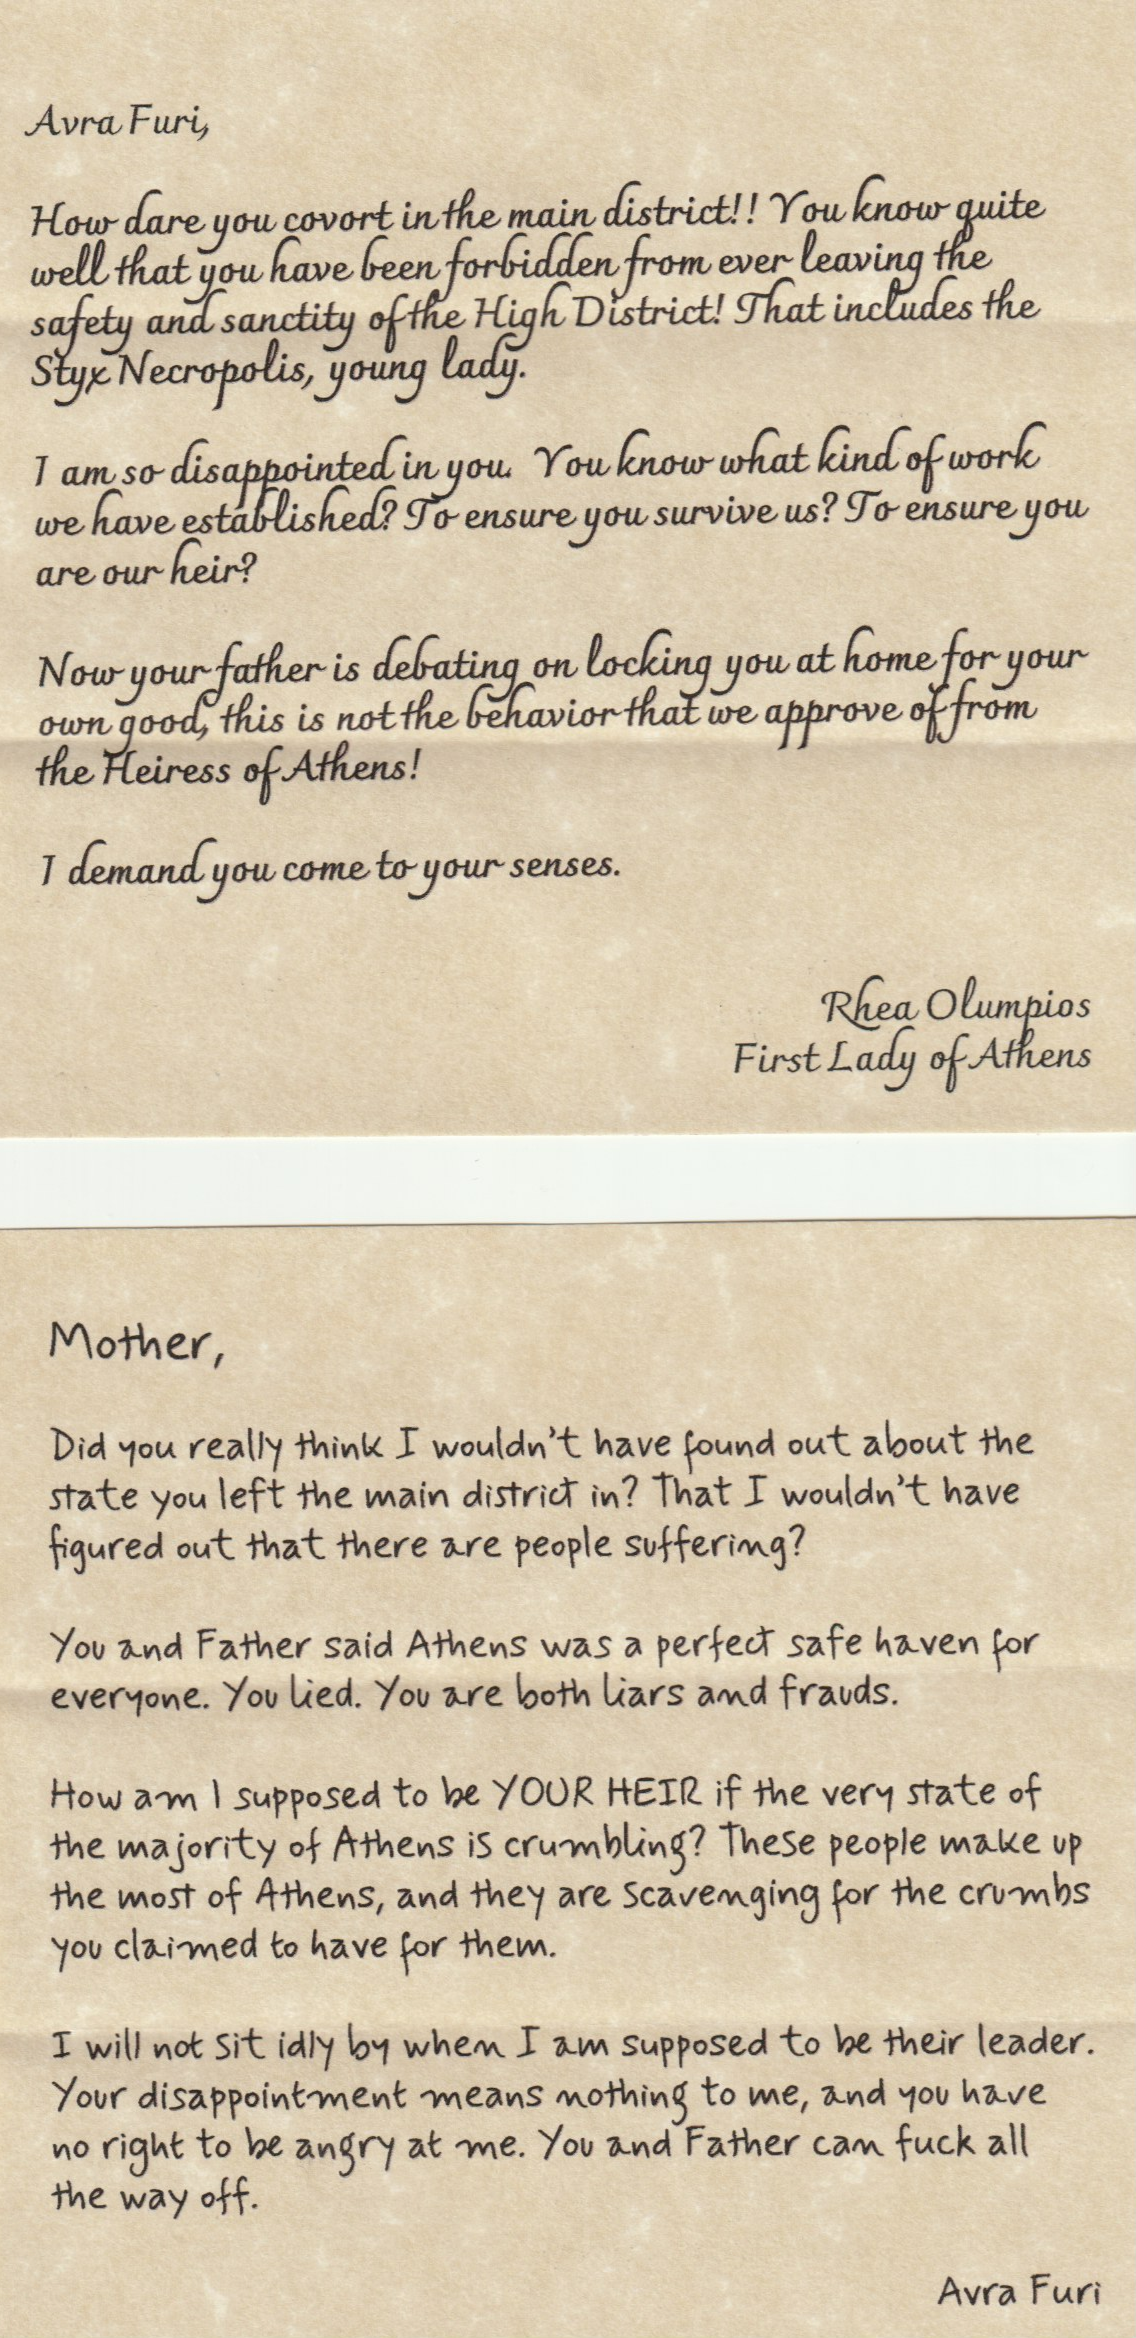 Avra Furi,
How dare you covort in the main district!! You know quite
well that you have been forbidden from ever leaving the
safety and sanctity of the High District! That includes the
Styx Necropolis, young lady.
I am so disappointed in you. You know what kind of work
we have established? To ensure you survive us? To ensure you
are our heir?
Now your father is debating on locking you at home for your
own good, this is not the behavior that we approve of from
the Heiress of Athens!
I demand you come to your senses.
Rhea Olumpios
First Lady of Athens
Mother,
Did you really think I wouldn't have found out about the
state you left the main district in? That I wouldn't have
figured out that there are people suffering?
You and Father said Athens was a perfect safe haven for
everyone. You lied. You are both liars and frauds.
How am I supposed to be YOUR HEIR if the very state of
the majority of Athens is crumbling? These people make up
the most of Athens, and they are scavenging for the crumbs
you claimed to have for them.
I will not sit idly by when I am supposed to be their leader.
Your disappointment means nothing to me, and you have
no right to be angry at me. You and Father can fuck all
the way off.
Avra Furi